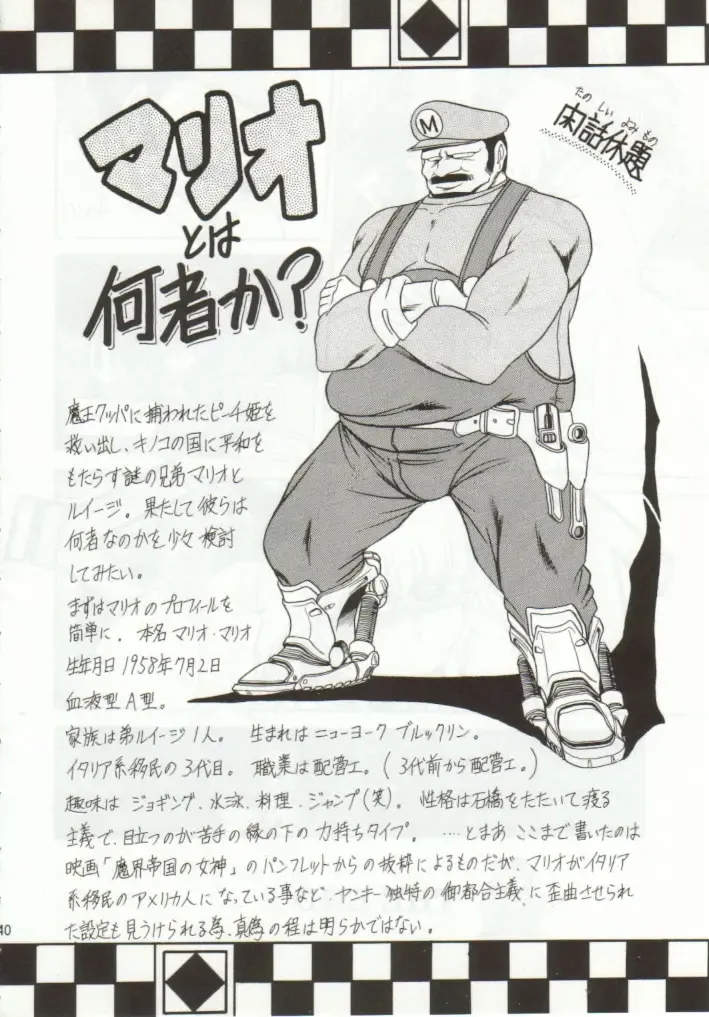 マリオ
とは
何者か?
たのしいよみもの
閑話休題
M
魔王クッパに捕われたピーチ姫を
救い出し、キノコの国に平和を
もたらす謎の兄弟マリオと
ルイージ。果たして彼らは
何者なのかを少々検討
してみたい。
まずはマリオのプロフィールを
簡単に。本名 マリオ・マリオ
生年月日 1958年7月2日
血液型 A型。
家族は弟ルイージ1人。 生まれはニューヨーク ブルックリン。
イタリア系移民の3代目。 職業は配管工。(3代前から配管工。)
趣味は ジョギング、水泳、料理、ジャンプ(笑)。 性格は石橋をたたいて寝る
主義で、目立つのが苦手の縁の下の力持ちタイプ。 ‥‥とまあ ここまで書いたのは
映画「魔界帝国の女神」のパンフレットからの抜粋によるものだが、マリオがイタリア
系移民のアメリカ人になっている事など、ヤンキー独特の御都合主義に歪曲させられ
た設定も見うけられる為、真偽の程は明らかではない。
40